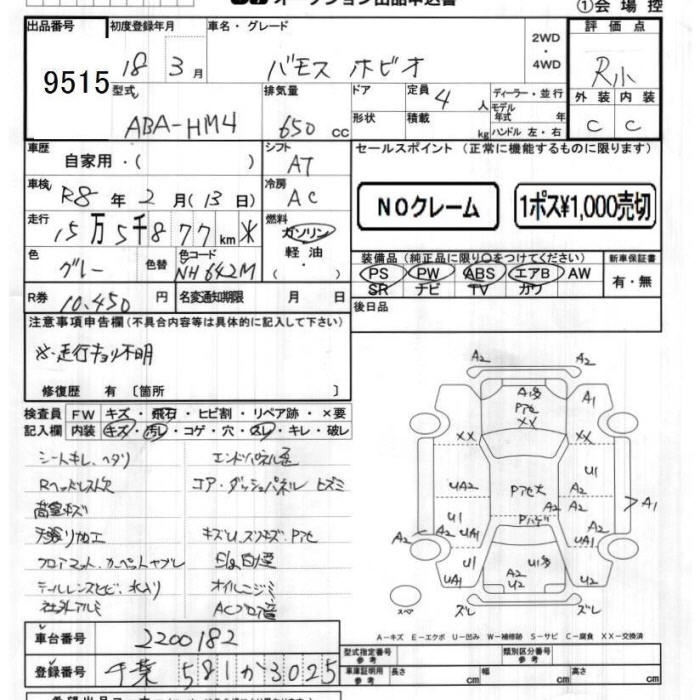 ①会場控
出品番号
9515
初度登録年月
18 3月
車名・グレード
バモス ホビオ
2WD
・
4WD
評価点
R小
外装 内装
C C
型式
ABA-HM4
排気量
650 cc
ドア
形状
定員 4 人
積載 kg
ディーラー・並行
モデル
年式 年
ハンドル 左・右
車歴
自家用・( )
シフト
AT
車検
R8年2月(13日)
冷房
AC
走行
15万5千877km
燃料
ガソリン
軽油
・
( )
色
グレー
色替
色コード
NH642M
R券 10,450円
名変通知期限 月 日
セールスポイント (正常に機能するものに限ります)
NOクレーム
1ポス¥1,000売切
装備品 (純正品に限り○をつけてください)
PS PW ABS エアB AW
SR ナビ TV カワ
新車保証書
有・無
後日品
注意事項申告欄(不具合内容等は具体的に記入して下さい)
※走行キョリ不明
修復歴 有〔箇所 〕
検査員 FW キズ・飛石・ヒビ割・リペア跡・×要
記入欄 内装 キズ・汚レ・コゲ・穴・スレ・キレ・破レ
シートキレ、ヘタリ
Rヘッドレスト欠
荷室キズ
天張り加工
フロアマット、カーペットヤブレ
テールレンズヒビ、水入り
社外アルミ
エンドパネル歪
コア・ダッシュパネル ヒズミ
キズU、スリキズ、Pアセ
Eg白煙
オイルニジミ
ACブロア音
A2 A2
A1多
Pアセ
XX
A1
XX XX
U1
UA2
Pアセ大
A2
A2
A1
U1
Pハゲ
A2 UA1
A2
A2
U1
UA1
A2
U2
UA1
U2
スペア
ズレ ズレ
A-キズ E-エクボ U-凹み W-補修跡 S-サビ C-腐食 XX-交換済
車台番号
2200182
登録番号
千葉 581 か 3025
型式指定番号
参考
類別区分番号
参考
車庫証明用
参考
長さ cm
幅 cm
高さ cm